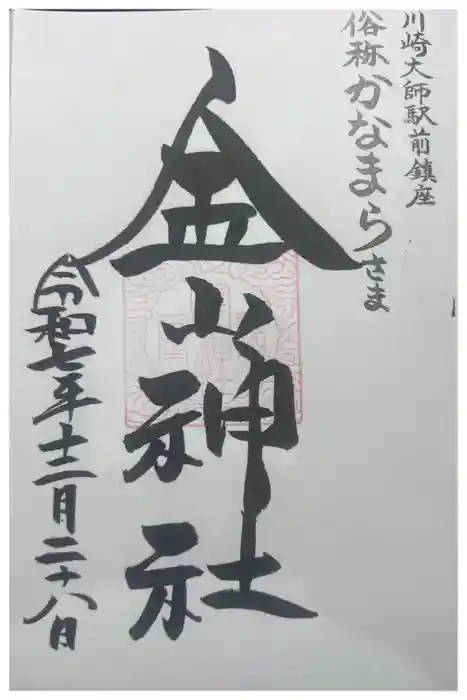 川崎大師駅前鎮座
俗称かなまらさま
金山神社
令和七年十二月二十八日